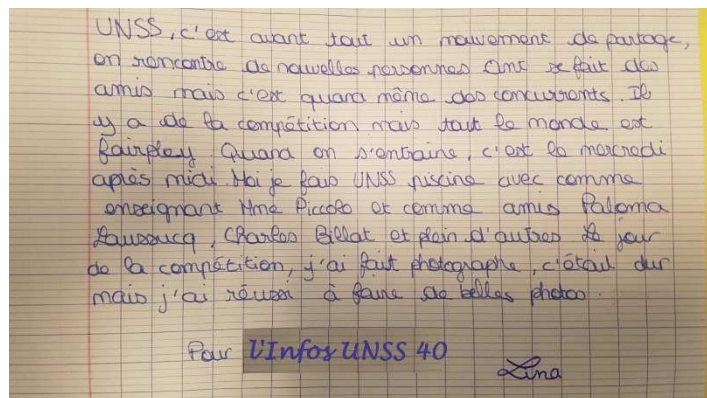 UNSS, c'est avant tout un mouvement de partage,
on rencontre de nouvelles personnes ont se fait des
amis mais c'est quand même des concurrents. Il
y a de la compétition mais tout le monde est
fairpley Quand on s'entraine, c'est le mercredi
après midi. Moi je fais UNSS piscine avec comme
enseignant Mme Piccolo et comme amis Paloma
Lausoucq, Charles Billat et plein d'autres Le jour
de la compétition, j'ai fait photographe, c'était dur
mais j'ai réussi à faire de belles photos.
Pour l'Infos UNSS 40
Lina